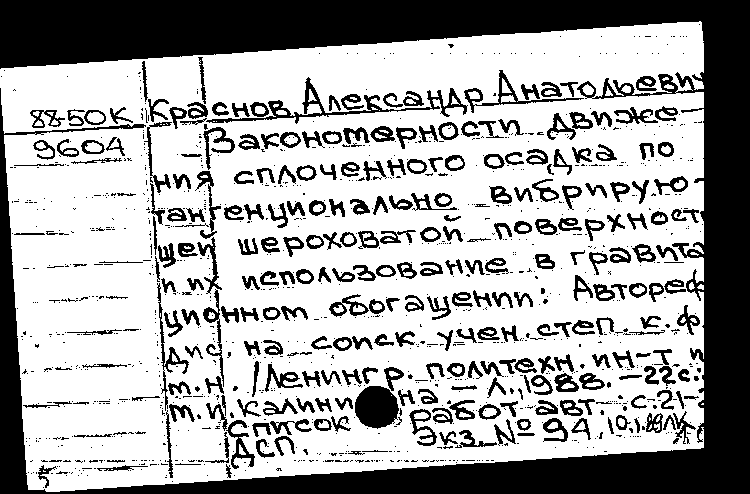 88-50К Краснов, Александр Анатольевич
9604 Закономерности движе-
ния сплоченного осадка по
тангенционально вибрирую-
щей шероховатой поверхност
и их использование в гравита
ционном обогащении: Автореф
дис. на соиск. учен. степ. к.ф.
м.н. / Ленингр. политехн. ин-т и
м. и. калини на. – Л., 1988. – 22с.:
список работ авт.: с.21-2
ДСП. Экз. № 94.
5